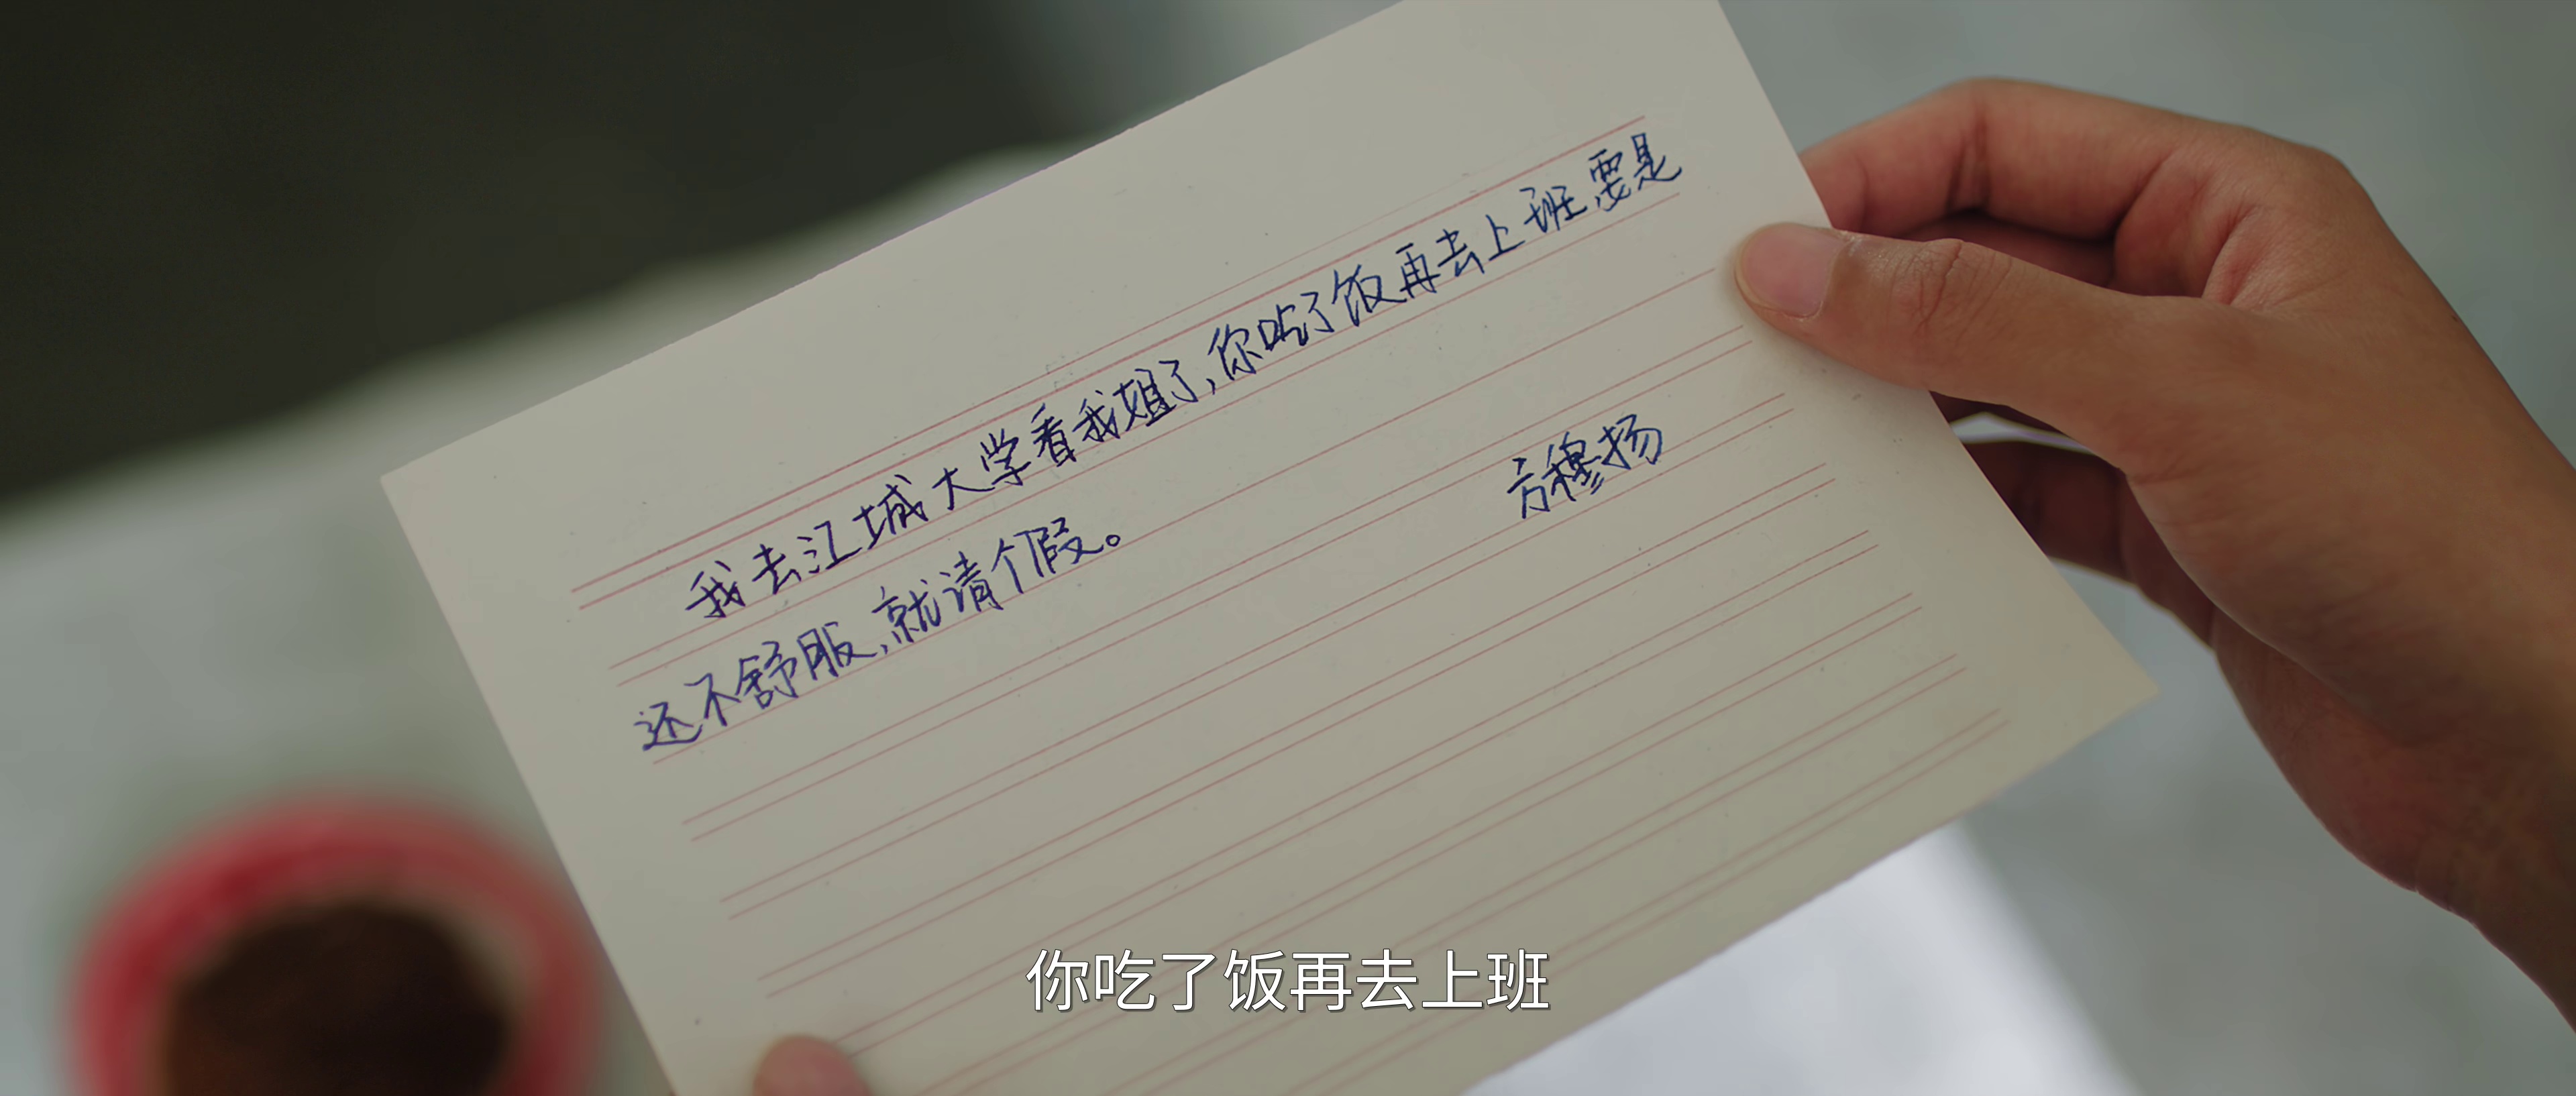 我去江城大学看我姐了,你吃了饭再去上班,要是
还不舒服,就请个假。
方穆扬
你吃了饭再去上班